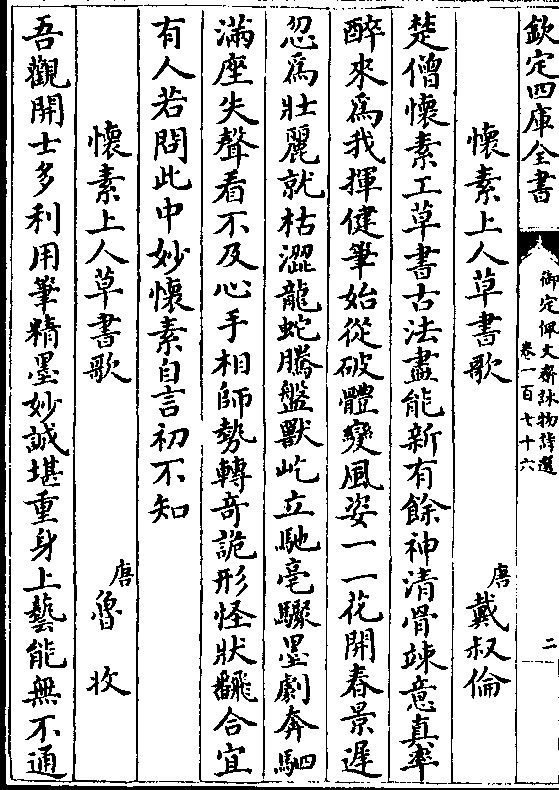 欽定四庫全書
御定佩文齋詠物詩選
卷一百七十六
二
懷素上人草書歌
唐
戴叔倫
楚僧懷素工草書古法盡能新有餘神清骨竦意真率
醉來為我揮健筆始從破體變風姿一一花開春景遲
忽為壯麗就枯澀龍蛇騰盤獸屹立馳毫驟墨劇奔駟
滿座失聲看不及心手相師勢轉奇詭形怪狀翻合宜
有人若問此中妙懷素自言初不知
懷素上人草書歌
唐
魯收
吾觀開士多利用筆精墨妙誠堪重身上藝能無不通